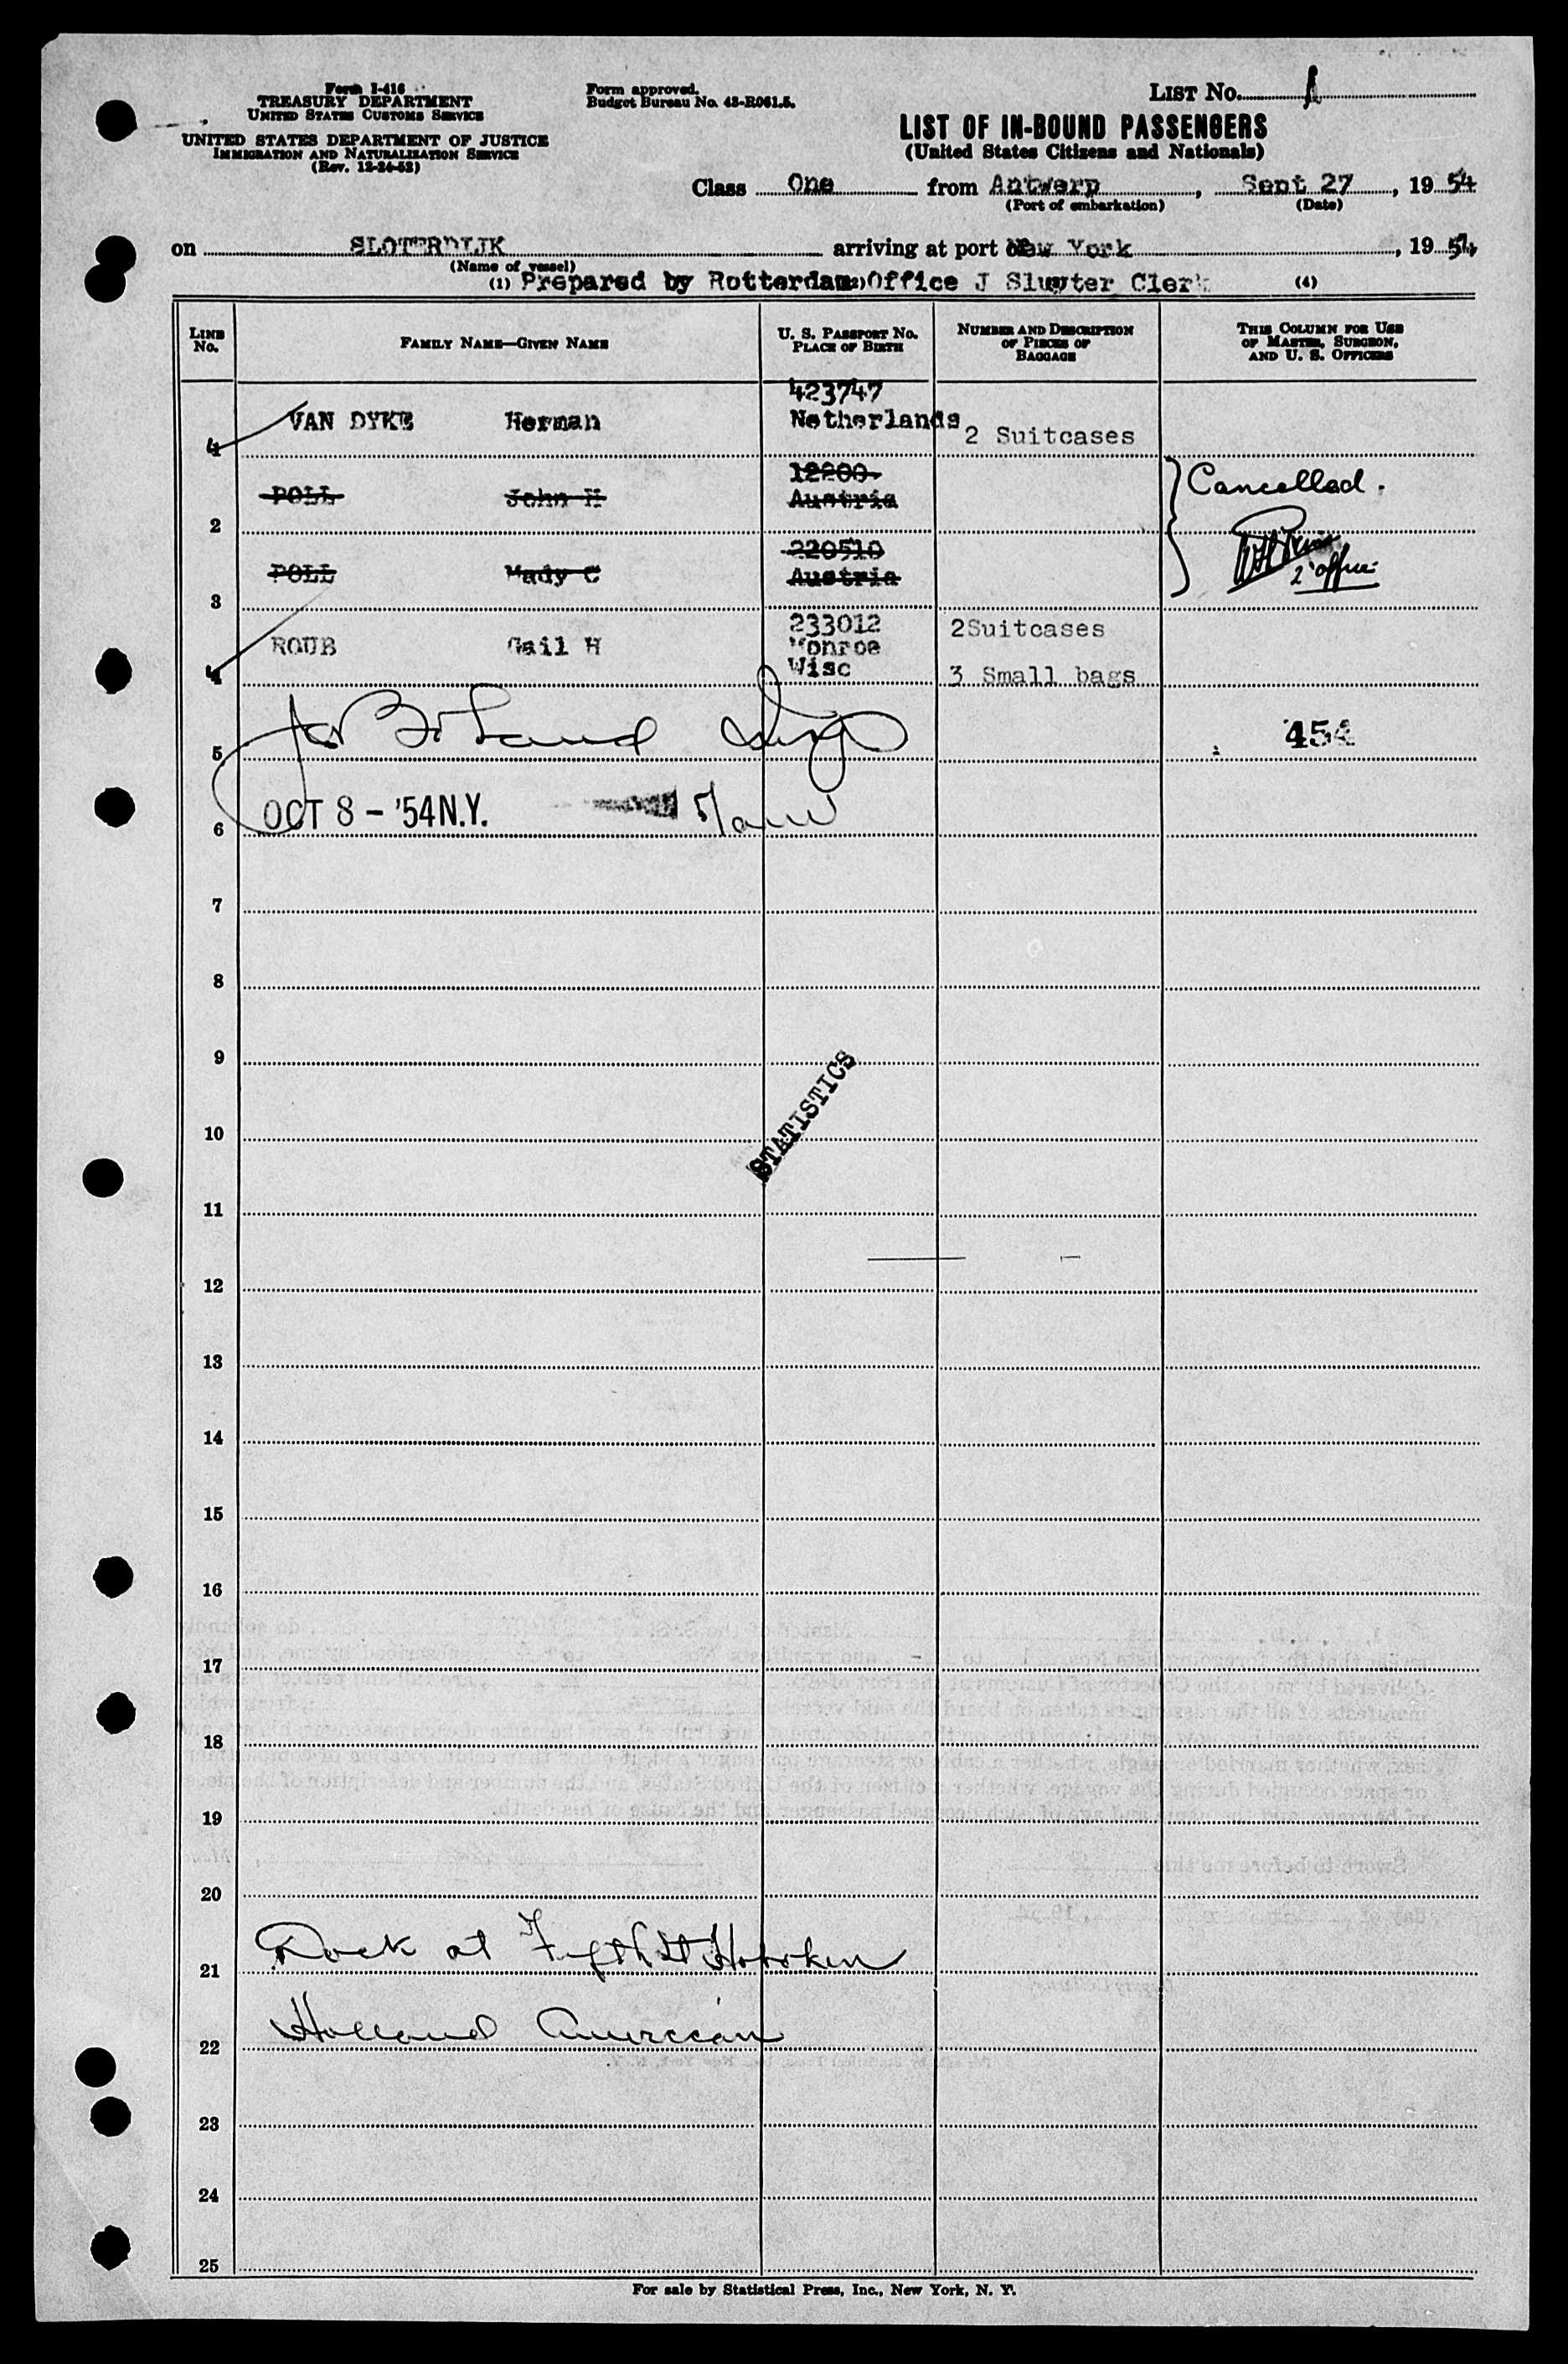 Form I-416
TREASURY DEPARTMENT
UNITED STATES CUSTOMS SERVICE
UNITED STATES DEPARTMENT OF JUSTICE
IMMIGRATION AND NATURALIZATION SERVICE
(Rev. 12-24-52)
Form approved.
Budget Bureau No. 43-R061.5.
LIST No. 1
LIST OF IN-BOUND PASSENGERS
(United States Citizens and Nationals)
Class One from Antwerp, Sept 27, 1954
(Port of embarkation) (Date)
on SLOTERDIJK arriving at port of New York, 1954
(Name of vessel)
(1) Prepared by Rotterdam Office J Sluyter Clerk (4)
LINE No. FAMILY NAME—GIVEN NAME U. S. PASSPORT No. PLACE OF BIRTH NUMBER AND DESCRIPTION OF PIECES OF BAGGAGE THIS COLUMN FOR USE OF MASTER, SURGEON, AND U. S. OFFICERS
423747
VAN DYKE Herman Netherlands
1 2 Suitcases
12200
POLL John H Austria Cancelled.
2
220510
POLL Mady C Austria 2 offic
3
233012 2Suitcases
ROUB Gail H Monroe
4 Wisc 3 Small bags
5 454
6 OCT 8 - '54 N.Y.
7
8
9
STATISTICS
10
11
12
13
14
15
16
17
18
19
20
21 Dock at Fifth St Hoboken
22 Holland American
23
24
25
For sale by Statistical Press, Inc., New York, N. Y.